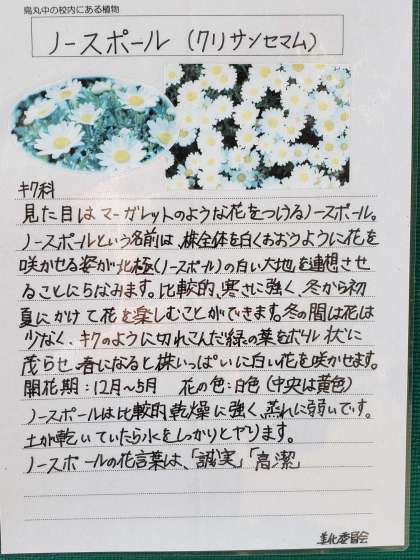 烏丸中の校内にある植物
ノースポール（クリサンセマム）
キク科
見た目はマーガレットのような花をつけるノースポール。
ノースポールという名前は、株全体を白くおおうように花を
咲かせる姿が北極(ノースポール)の白い大地を連想させ
ることにちなみます。比較的、寒さに強く、冬から初
夏にかけて花を楽しむことができます。冬の間は花は
少なく、キクのように切れこんだ緑の葉をボール状に
茂らせ、春になると株いっぱいに白い花を咲かせます。
開花期：12月～5月　花の色：白色（中央は黄色）
ノースポールは比較的乾燥に強く、蒸れに弱いです。
土が乾いていたら水をしっかりとやります。
ノースポールの花言葉は、「誠実」「高潔」
美化委員会